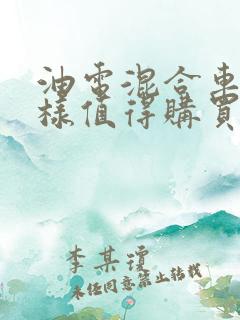 油電混合車
樣值得購買
李某瓊
未經同意禁止轉載